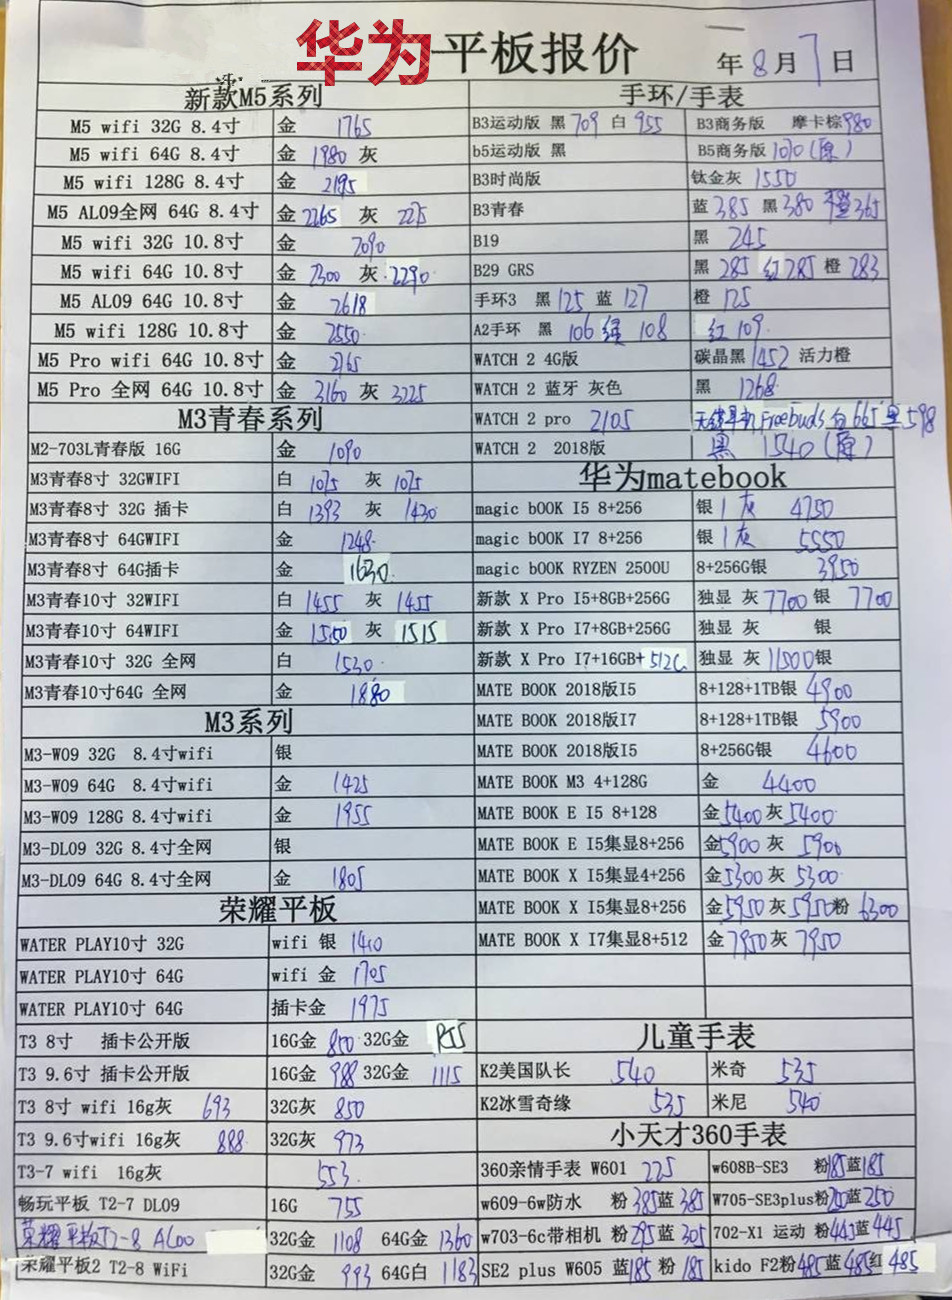 华为平板报价 年8月7日
新款M5系列
M5 wifi 32G 8.4寸 金 1765
M5 wifi 64G 8.4寸 金 1980 灰
M5 wifi 128G 8.4寸 金 2195
M5 AL09全网 64G 8.4寸 金 2265 灰 2275
M5 wifi 32G 10.8寸 金 2090
M5 wifi 64G 10.8寸 金 2300 灰 2290
M5 AL09 64G 10.8寸 金 2618
M5 wifi 128G 10.8寸 金 2550
M5 Pro wifi 64G 10.8寸 金 2765
M5 Pro 全网 64G 10.8寸 金 3160 灰 3225
M3青春系列
M2-703L青春版 16G 金 1090
M3青春8寸 32GWIFI 白 1075 灰 1075
M3青春8寸 32G 插卡 白 1393 灰 1430
M3青春8寸 64GWIFI 金 1248
M3青春8寸 64G插卡 金 1630
M3青春10寸 32WIFI 白 1455 灰 1455
M3青春10寸 64WIFI 金 1550 灰 1515
M3青春10寸 32G 全网 白 1530
M3青春10寸64G 全网 金 1880
M3系列
M3-W09 32G 8.4寸wifi 银
M3-W09 64G 8.4寸wifi 金 1425
M3-W09 128G 8.4寸wifi 金 1955
M3-DL09 32G 8.4寸全网 银
M3-DL09 64G 8.4寸全网 金 1805
荣耀平板
WATER PLAY10寸 32G wifi 银 1410
WATER PLAY10寸 64G wifi 金 1705
WATER PLAY10寸 64G 插卡金 1975
T3 8寸 插卡公开版 16G金 850 32G金
T3 9.6寸 插卡公开版 16G金 988 32G金 1115
T3 8寸 wifi 16g灰 693 32G灰 850
T3 9.6寸wifi 16g灰 888 32G灰 973
T3-7 wifi 16g灰 553
畅玩平板 T2-7 DL09 16G 755
荣耀平板T2-8 AL00 32G金 1108 64G金 1360
荣耀平板2 T2-8 WiFi 32G金 993 64G白 1183
手环/手表
B3运动版 黑 709 白 955 B3商务版 摩卡棕980
b5运动版 黑 B5商务版 1070(原)
B3时尚版 钛金灰 1550
B3青春 蓝 385 黑 380 橙365
B19 黑 245
B29 GRS 黑 285 红285 橙 283
手环3 黑 125 蓝 127 橙 125
A2手环 黑 106 绿 108 红 109
WATCH 2 4G版 碳晶黑 1452 活力橙
WATCH 2 蓝牙 灰色 黑 1268
WATCH 2 pro 2105 无线耳机Freebuds 白 665 黑 598
WATCH 2 2018版 黑 1540 (原)
华为matebook
magic bOOK I5 8+256 银 1 灰 4750
magic bOOK I7 8+256 银 1 灰 5550
magic bOOK RYZEN 2500U 8+256G银 3950
新款 X Pro I5+8GB+256G 独显 灰 7700 银 7700
新款 X Pro I7+8GB+256G 独显 灰 银
新款 X Pro I7+16GB+512G 独显 灰 11500银
MATE BOOK 2018版I5 8+128+1TB银 4900
MATE BOOK 2018版I7 8+128+1TB银 5900
MATE BOOK 2018版I5 8+256G银 4600
MATE BOOK M3 4+128G 金 4400
MATE BOOK E I5 8+128 金5400灰5400
MATE BOOK E I5集显8+256 金5900灰 5900
MATE BOOK X I5集显4+256 金5300灰 5300
MATE BOOK X I5集显8+256 金5950灰5950粉 6300
MATE BOOK X I7集显8+512 金7950灰 7950
儿童手表
K2美国队长 540 米奇 535
K2冰雪奇缘 535 米尼 540
小天才360手表
360亲情手表 W601 225 w608B-SE3 粉185蓝185
w609-6w防水 粉 385蓝 385 W705-SE3plus粉250蓝 250
w703-6c带相机 粉 295蓝 305 702-X1 运动 粉445蓝 445
SE2 plus W605 蓝185 粉 185 kido F2粉485蓝485红 485